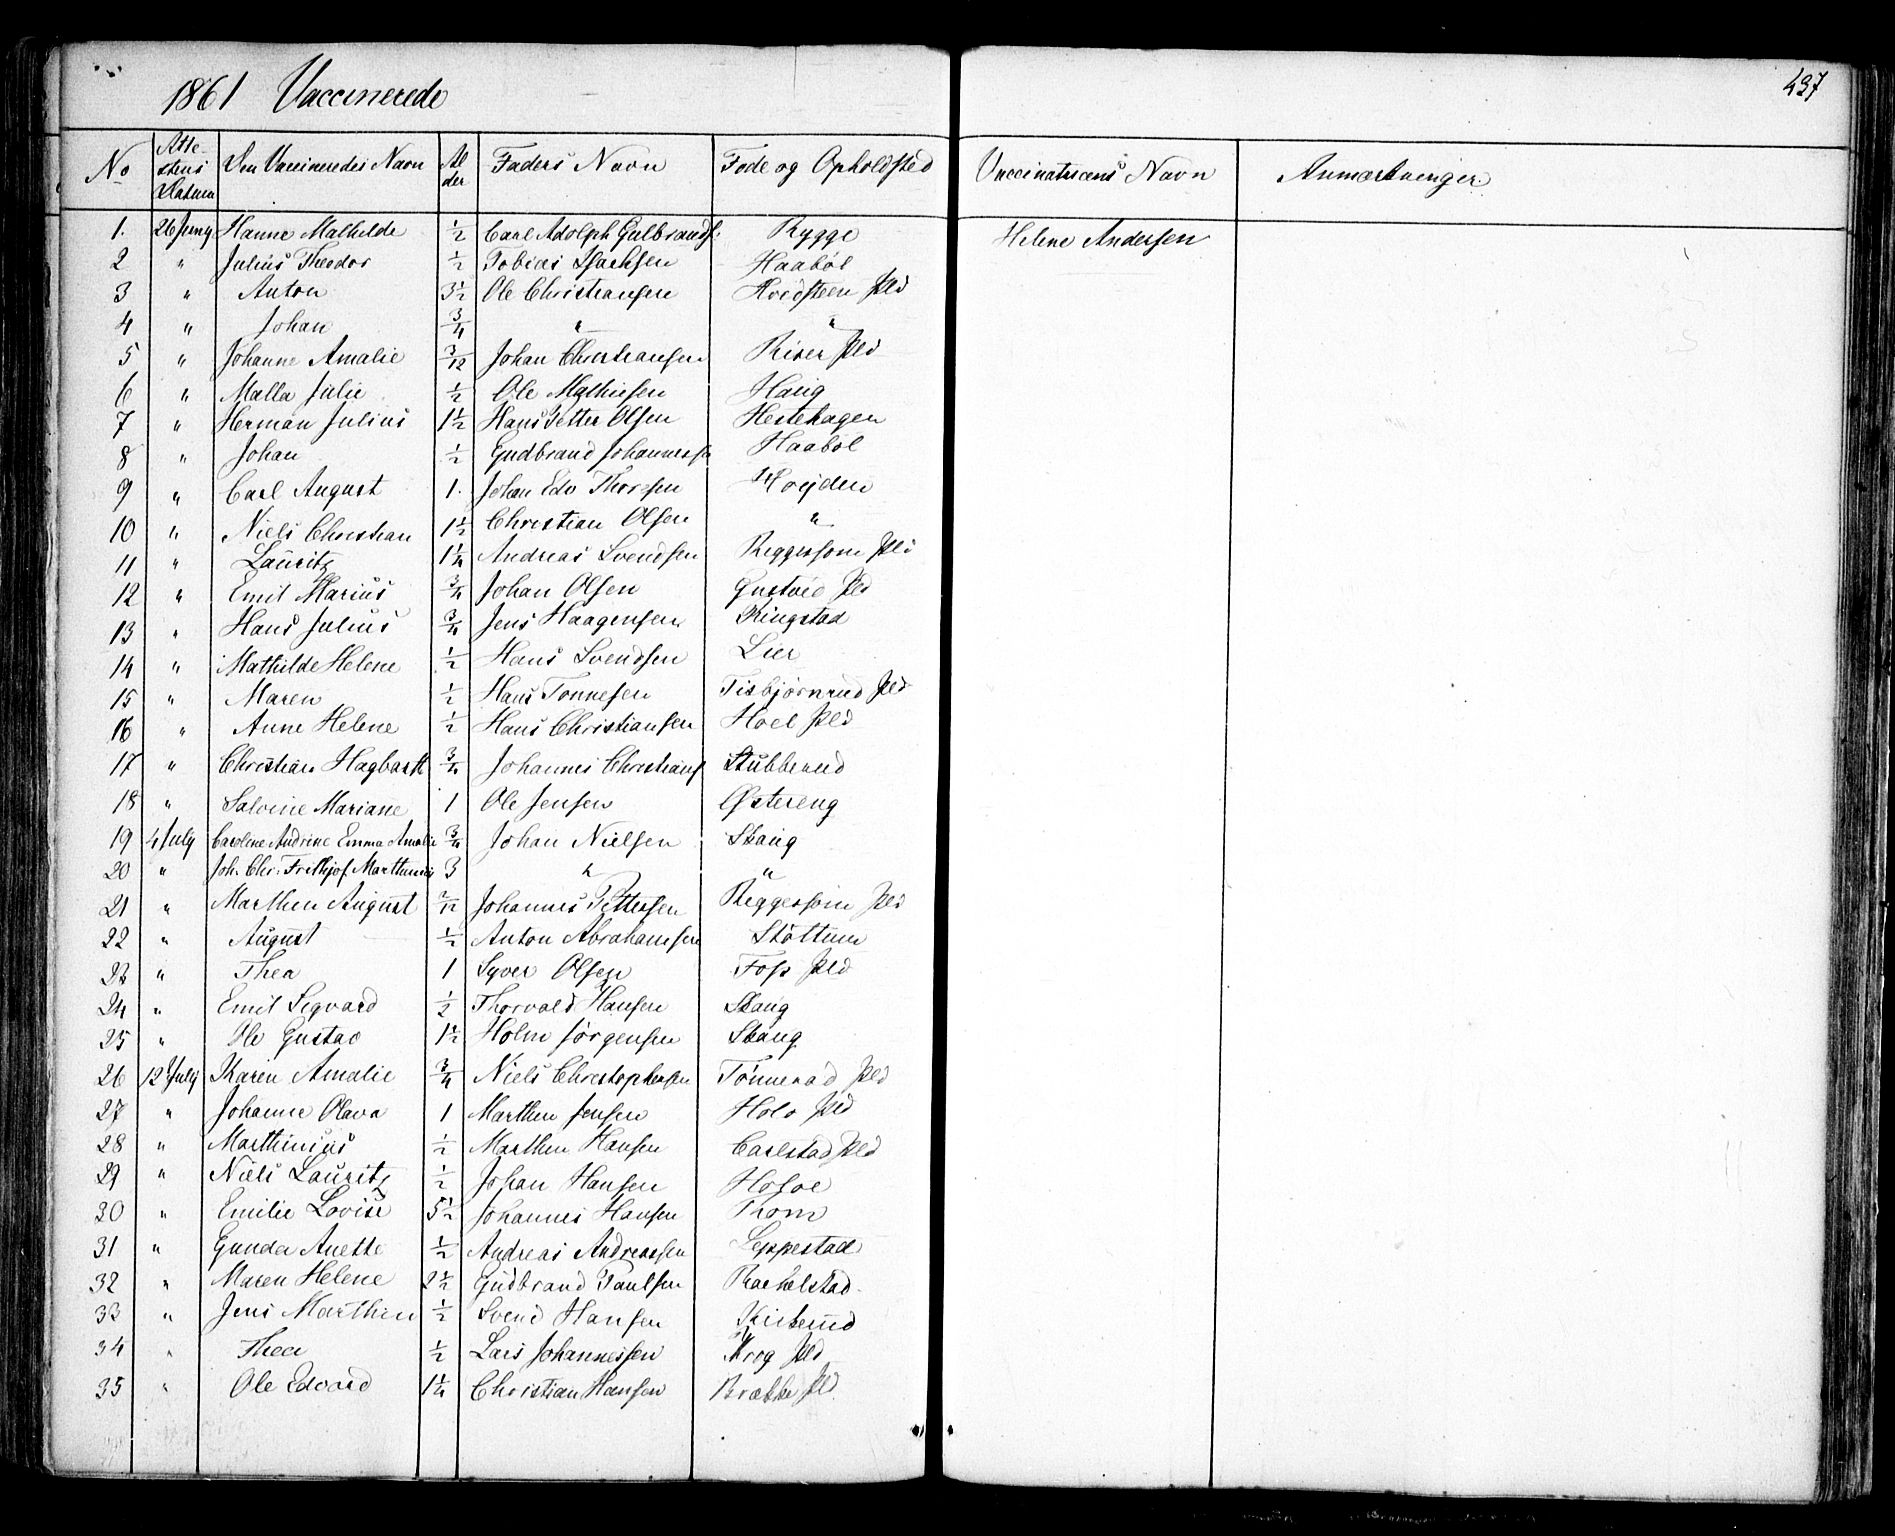 437
1861 Vaccinerede
No Attestens Datum Den Vaccineredes Navn Alder Faders Navn Føde og Opholdsted Vaccinatricens Navn Anmærkninger
1. 26 Juny Hanne Mathilde 1/2 Carl Adolph Gulbrands: Rygge Helene Andersen
2 " Julius Theodor 1/2 Tobias Isachsen Haabøl
3 " Anton 3 1/2 Ole Christiansen Hvidsteen Pld
4 " Johan 3/4 " "
5 " Johanne Amalie 3/12 Johan Christiansen Riser Pld
6 " Malla Julie 1/2 Ole Mathiesen Haug
7 " Herman Julius 1 1/2 Hans Petter Olsen Hestehagen
8 " Johan 1/2 Gudbrand Johannessen Haabøl
9 " Carl August 1. Johan Edv Thoresen Høijden
10 " Niels Christian 1 1/2 Christian Olsen "
11 " Lauritz 1 1/4 Andreas Svendsen Reggessom Pld
12 " Emil Marius 3/4 Johan Olsen Pld
13 " Hans Julius 3/4 Jens Haagensen Ringstad
14 " Mathilde Helene 1/2 Hans Svendsen Lier
15 " Maren 1/2 Hans Tønnesen Tisbjørnrud Pld
16 " Anne Helene 1/2 Hans Christiansen Hoel Pld
17 " Christian Hagbarth 3/4 Johannes Christians Stubberud
18 " Salvine Mariane 1 Ole Jensen Østereng
19 4 July Carolene Andrine Emma Amalie 3/4 Johan Nielsen Skaug
20 " Joh. Chr. Frithjof Marthinius 3 " "
21 " Marthin August 2/12 Johannes Pettersen Reggessom Pld
22 " August 1/2 Anton Abrahamsen Støttum
23 " Thea 1 Syver Olsen Foss Pld
24 " Emil Segvard 1/2 Thorvald Hansen Skaug
25 " Ole Gustav 1 1/2 Holm Jørgensen Skaug
26 12 July Karen Amalie 3/4 Niels Christophersen Tømmerød Pld
27 " Johanne Olava 1 Marthin Jensen Holo Pld
28 " Marthinius 1/2 Marthin Hansen Carlstad Pld
29 " Niels Lauritz 1/2 Johan Hansen Hofsoe
30 " Emilie Lovise 5 1/2 Johannes Hansen Rom
31 " Gunda Anette 1/2 Andreas Andreassen Leppestad
32 " Maren Helene 2 1/2 Gudbrand Paulsen Rakelstad
33 " Jens Marthin 1/2 Svend Hansen Kirkerud
34 " Thea 1/2 Lars Johannessen Krog Pld
35 " Ole Edvard 1 1/4 Christian Hansen Brække Pld